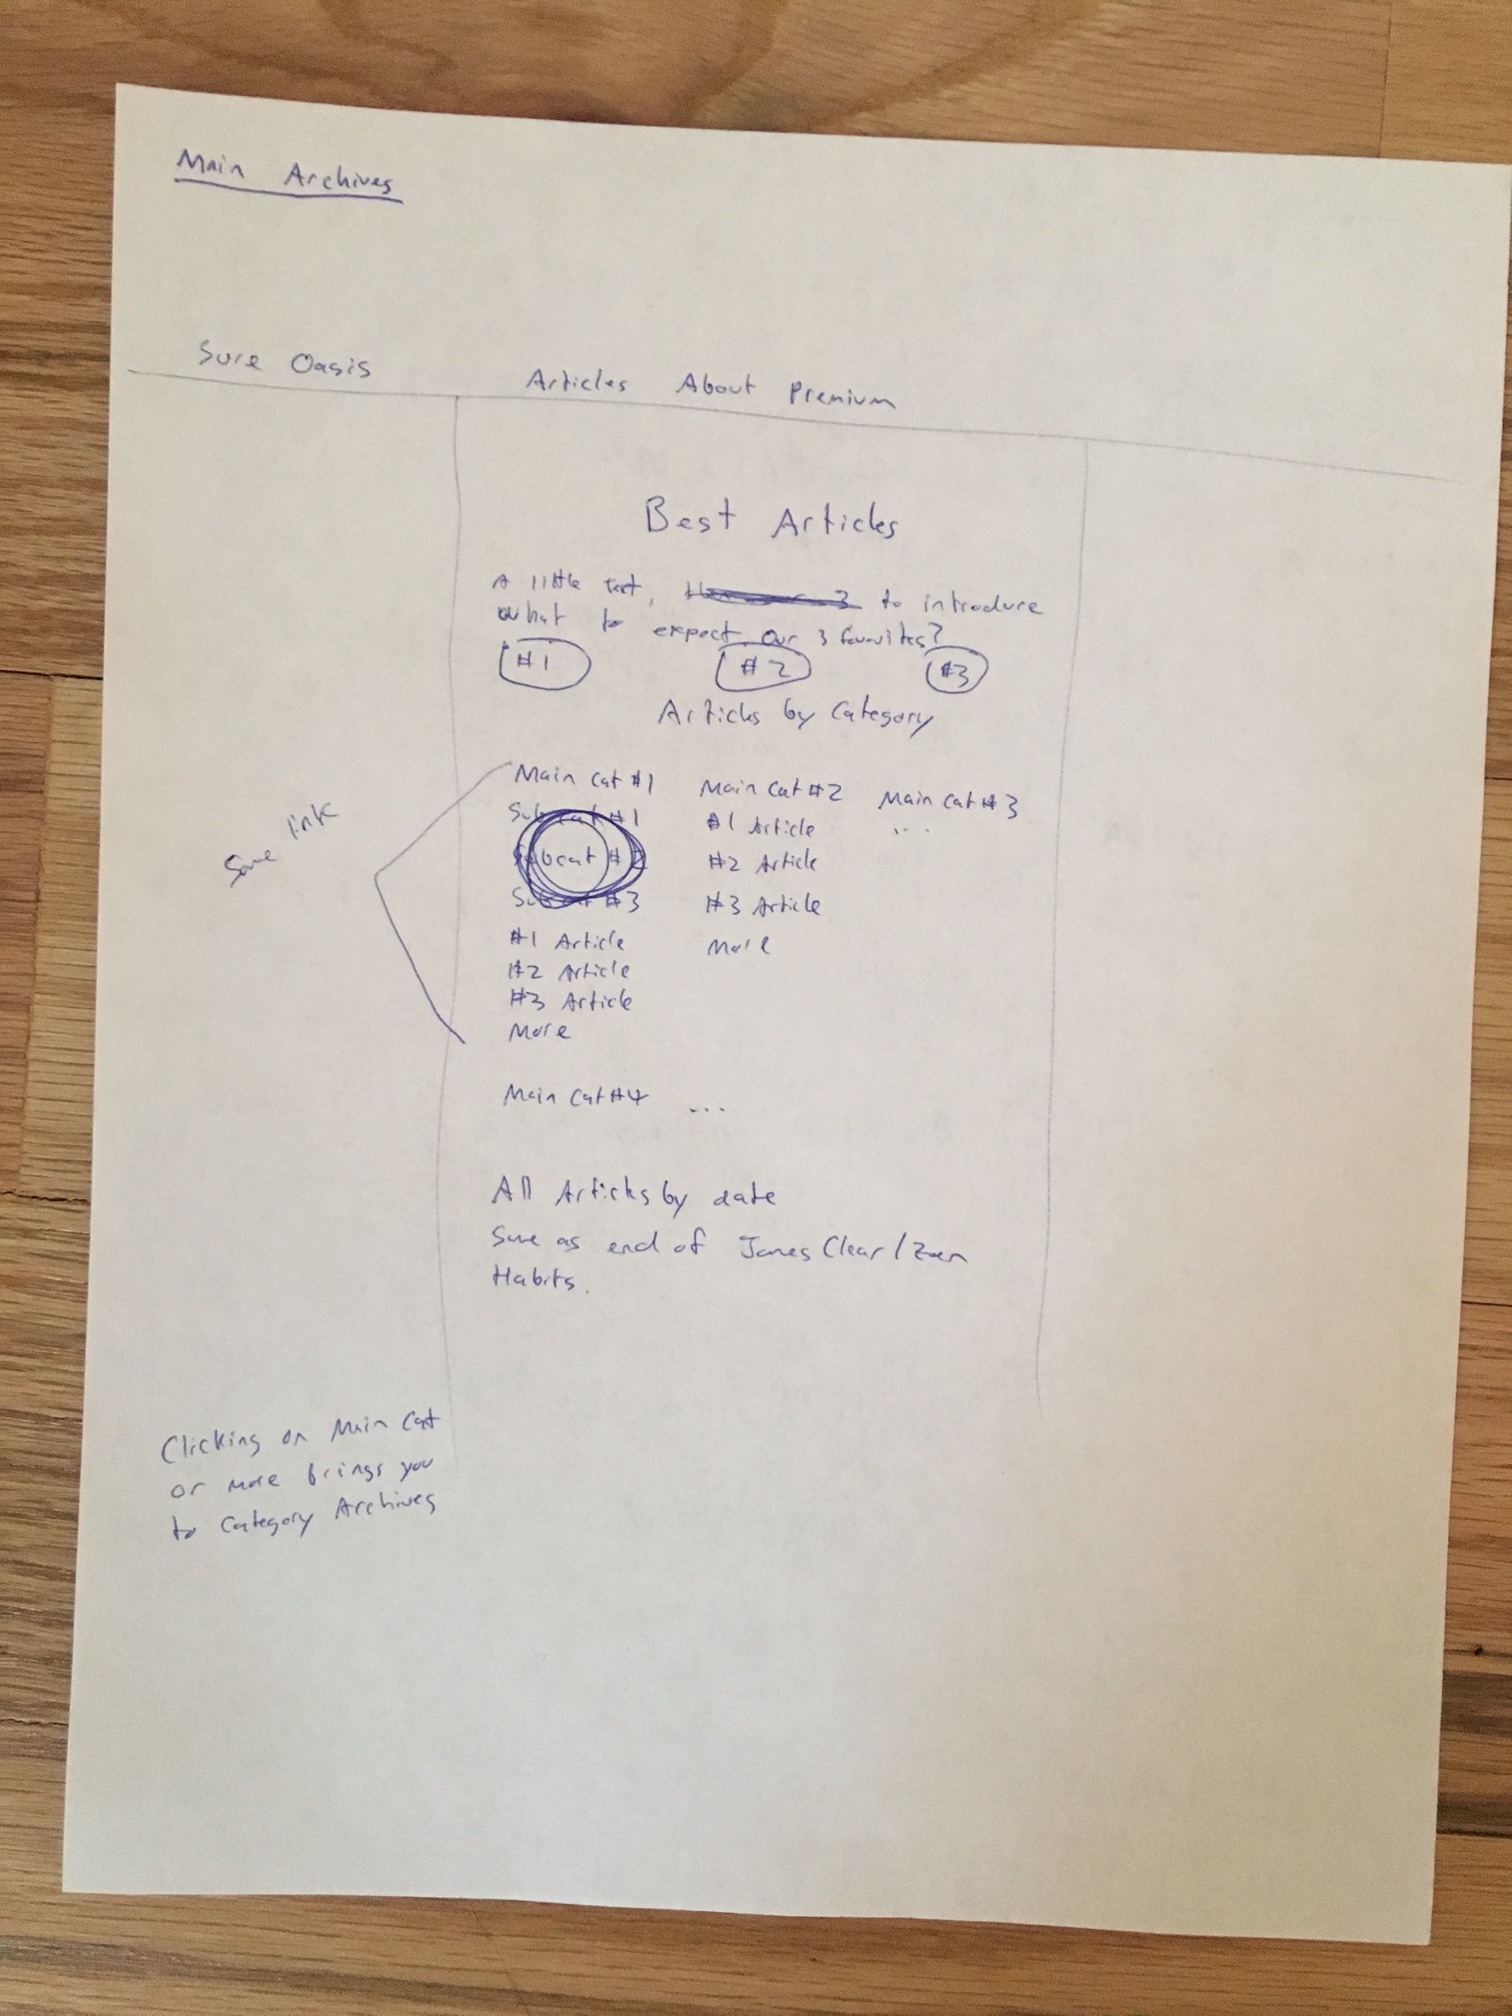 Main Archives
Sure Oasis
Articles About Premium
Best Articles
A little text, to introduce
what to expect. Our 3 favorites?
#1 #2 #3
Articles by Category
Main Cat #1 Main Cat #2 Main Cat #3
Subcat #1 #1 Article ...
Subcat #2 #2 Article
Subcat #3 #3 Article
#1 Article More
#2 Article
#3 Article
More
Same link
Main Cat #4 ...
All Articles by date
Same as end of James Clear / Zen
Habits.
Clicking on Main Cat
or more brings you
to Category Archives